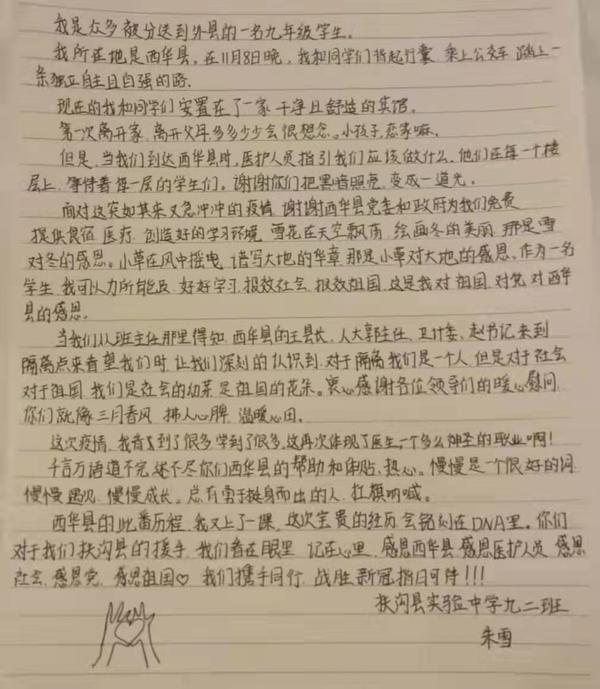 我是众多被分送到外县的一名九年级学生。
我所在地是西华县。在11月8日晚,我和同学们背起行囊,乘上公交车,踏上一
条独立自主且自强的路.
现在的我和同学们安置在了一家干净且舒适的宾馆.
第一次离开家,离开父母,多多少少会很想念。小孩子,恋家嘛.
但是,当我们到达西华县时,医护人员指引我们应该做什么,他们在每一个楼
层上,等侍着每一层的学生们。谢谢你们把黑暗照亮,变成一道光。
面对这突如其来又急冲冲的疫情,谢谢西华县党委和政府为我们免费
提供食宿,医疗,创造好的学习环境,雪花在天空飘荡,绘画冬的美丽,那是雪
对冬的感恩。小草在风中摇曳,谱写大地的华章,那是小草对大地的感恩。作为一名
学生,我可以力所能及,好好学习,报效社会,报效祖国,这是我对祖国,对党,对西华
县的感恩。
当我们从班主任那里得知,西华县的王县长,人大郭主任,卫计委,赵书记来到
隔离点来看望我们时,让我们深刻的认识到,对于隔离我们是一个人,但是对于社会
对于祖国,我们是社会的幼芽,是祖国的花朵。衷心感谢各位领导们的暖心慰问,
你们就像三月春风,拂人心脾,温暖心田。
这次疫情,我看到了很多,学到了很多,这再次体现了医生,一个多么神圣的职业啊!
千言万语道不完,述不尽你们西华县的帮助和体贴,热心。慢慢是一个很好的词,
慢慢遇见,慢慢成长。总有勇于挺身而出的人,扛旗呐喊。
西华县的此番历程,我又上了一课,这次宝贵的经历会铭刻在DNA里。你们
对于我们扶沟县的援手,我们看在眼里,记在心里,感恩西华县,感恩医护人员,感恩
社会,感恩党,感恩祖国♡ 我们携手同行,战胜新冠指日可待!!!
扶沟县实验中学九二班
朱雪